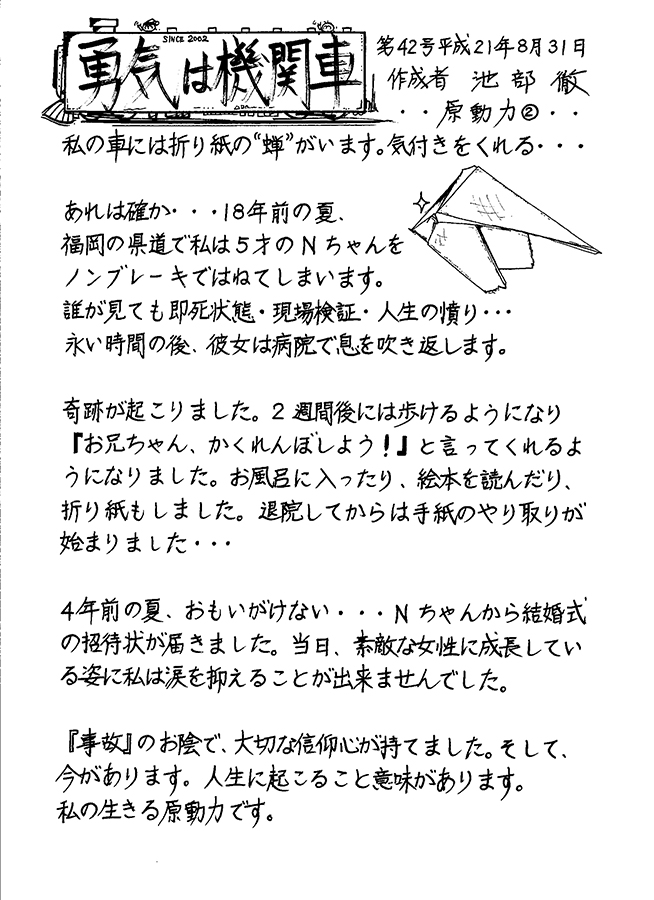 SINCE 2002
勇気は機関車
第42号平成21年8月31日
作成者 池部 徹
・・原動力②・・
私の車には折り紙の“蝉”がいます。気付きをくれる・・・
あれは確か・・・18年前の夏、
福岡の県道で私は5才のNちゃんを
ノンブレーキではねてしまいます。
誰が見ても即死状態・現場検証・人生の憤り・・・
永い時間の後、彼女は病院で息を吹き返します。
奇跡が起こりました。2週間後には歩けるようになり
『お兄ちゃん、かくれんぼしよう!』と言ってくれるよ
うになりました。お風呂に入ったり、絵本を読んだり、
折り紙もしました。退院してからは手紙のやり取りが
始まりました・・・
4年前の夏、おもいがけない・・・Nちゃんから結婚式
の招待状が届きました。当日、素敵な女性に成長してい
る姿に私は涙を抑えることが出来ませんでした。
『事故』のお陰で、大切な信仰心が持てました。そして、
今があります。人生に起こること意味があります。
私の生きる原動力です。